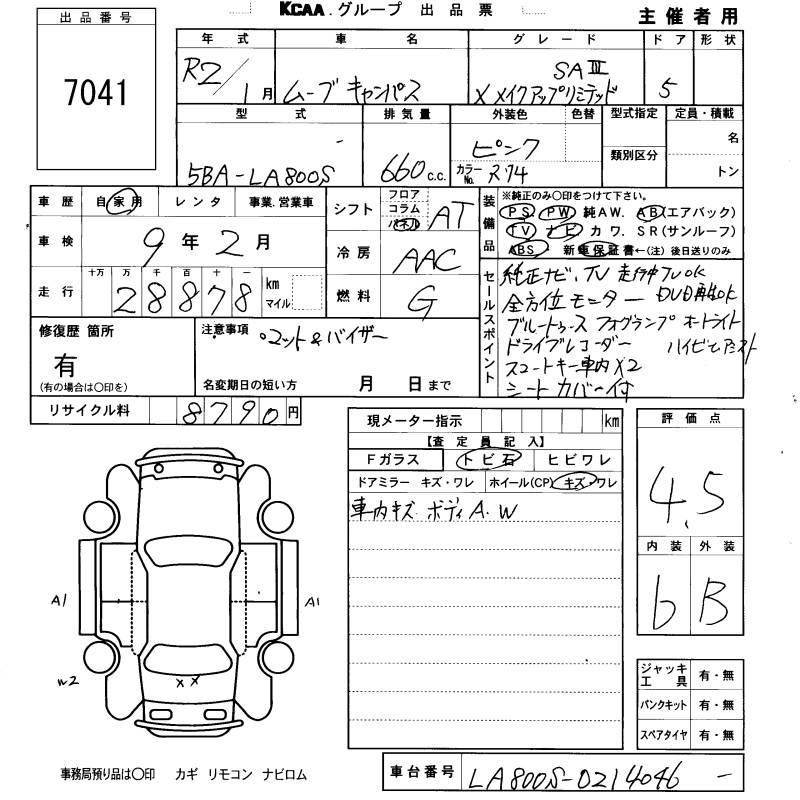 KCAA.グループ 出品票
主催者用
出品番号
7041
年式 車名 グレード ドア 形状
R2/1月 ムーブキャンバス X メイクアップリミテッド SAⅢ 5
型式 排気量 外装色 色替 型式指定 定員・積載
5BA-LA800S 660 c.c. ピンク
カラーNo.
類別区分
名
トン
車歴 自家用 レンタ 事業.営業車
車検 9年2月
走行 十万 万 千 百 十 一
28878 km マイル
シフト フロア コラム パネル AT
冷房 AAC
燃料 G
装備品
※純正のみ○印をつけて下さい。
PS PW 純AW. AB(エアバック)
TV ナビ カワ. SR(サンルーフ)
ABS 新車保証書←(注) 後日送りのみ
セールスポイント
純正ナビ、TV 走行中TVOK
全方位モニター DVD再生OK
ブルートゥース フォグランプ オートライト
ドライブレコーダー ハイビームアシスト
スマートキー車内X2
シートカバー付
修復歴 箇所
有
(有の場合は○印を)
注意事項
マット&バイザー
名変期日の短い方 月 日まで
リサイクル料 8790円
現メーター指示 km
【査定員記入】
Fガラス トビ石 ヒビワレ
ドアミラー キズ・ワレ ホイール(CP) キズ・ワレ
車内キズ ボディA.W
評価点
4.5
内装 外装
b B
A1 A1
W2
x x
ジャッキ工具 有・無
パンクキット 有・無
スペアタイヤ 有・無
事務局預り品は○印 カギ リモコン ナビロム
車台番号 LA800S-0214046 -